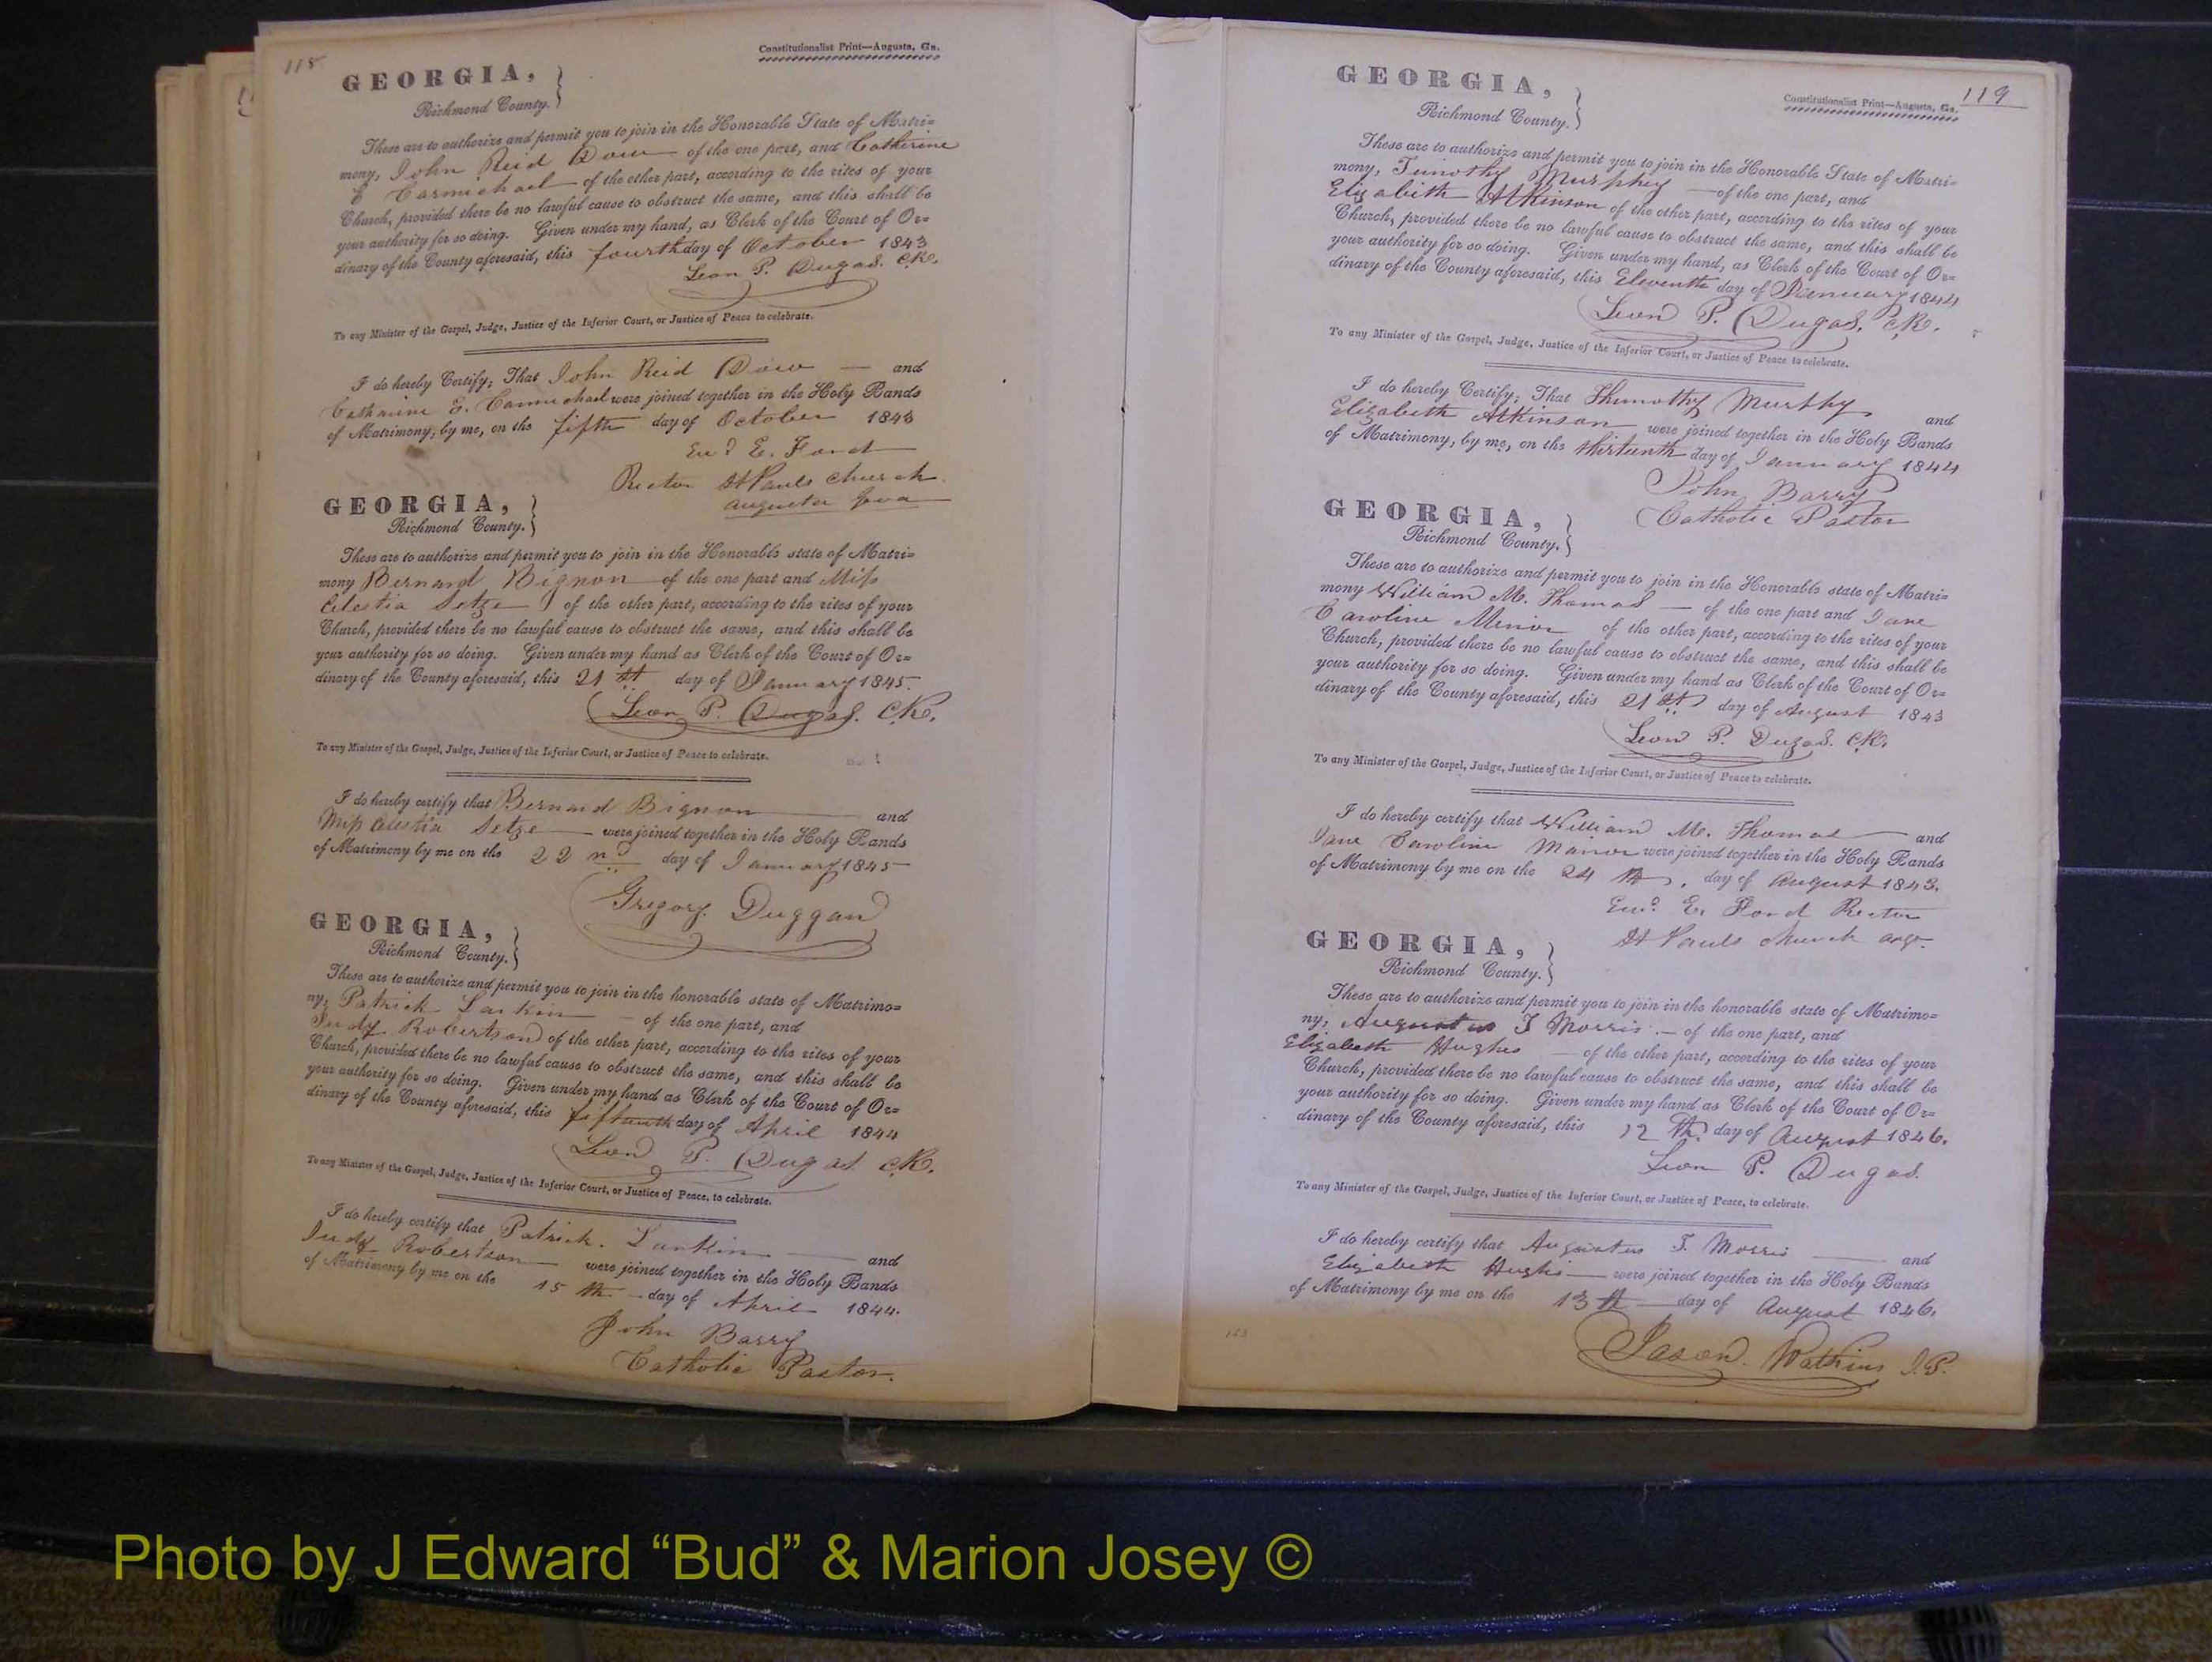 118
Constitutionalist Print—Augusta, Ga.
GEORGIA,
Richmond County.
These are to authorize and permit you to join in the Honorable State of Matri=
mony, John Reid Dow of the one part, and Catherine
E Carmichael of the other part, according to the rites of your
Church, provided there be no lawful cause to obstruct the same, and this shall be
your authority for so doing. Given under my hand, as Clerk of the Court of Or=
dinary of the County aforesaid, this fourth day of October 1843
Leon P. Dugas. Clk.
To any Minister of the Gospel, Judge, Justice of the Inferior Court, or Justice of Peace to celebrate.
I do hereby Certify; That John Reid Dow — and
Catharine E. Carmichael were joined together in the Holy Bands
of Matrimony, by me, on the fifth day of October 1843
Edwd E. Ford
Rector St Pauls Church
Augusta Geoa
GEORGIA,
Richmond County.
These are to authorize and permit you to join in the Honorable state of Matri=
mony Bernard Bignon of the one part and Miss
Celestia Setze of the other part, according to the rites of your
Church, provided there be no lawful cause to obstruct the same, and this shall be
your authority for so doing. Given under my hand as Clerk of the Court of Or=
dinary of the County aforesaid, this 21st day of January 1845.
Leon P. Dugas. Clk.
To any Minister of the Gospel, Judge, Justice of the Inferior Court, or Justice of Peace to celebrate.
I do hereby certify that Bernard Bignon and
Miss Celestia Setze were joined together in the Holy Bands
of Matrimony by me on the 22nd day of January 1845
Gregory Duggan
GEORGIA,
Richmond County.
These are to authorize and permit you to join in the honorable state of Matrimo=
ny, Patrick Larkin — of the one part, and
Judy Robertson of the other part, according to the rites of your
Church, provided there be no lawful cause to obstruct the same, and this shall be
your authority for so doing. Given under my hand as Clerk of the Court of Or=
dinary of the County aforesaid, this fifteenth day of April 1844
Leon P. Dugas Clk.
To any Minister of the Gospel, Judge, Justice of the Inferior Court, or Justice of Peace, to celebrate.
I do hereby certify that Patrick. Larkin and
Judy Robertson were joined together in the Holy Bands
of Matrimony by me on the 15th day of April 1844.
John Barry
Catholic Pastor.
119
Constitutionalist Print—Augusta, Ga.
GEORGIA,
Richmond County.
These are to authorize and permit you to join in the Honorable State of Matri=
mony, Timothy Murphey — of the one part, and
Elizabeth Atkinson of the other part, according to the rites of your
Church, provided there be no lawful cause to obstruct the same, and this shall be
your authority for so doing. Given under my hand, as Clerk of the Court of Or=
dinary of the County aforesaid, this Eleventh day of January 1844
Leon P. Dugas. Clk.
To any Minister of the Gospel, Judge, Justice of the Inferior Court, or Justice of Peace to celebrate.
I do hereby Certify; That Thimothy Murphy and
Elizabeth Atkinson were joined together in the Holy Bands
of Matrimony, by me, on the thirteenth day of January 1844
John Barry
Catholic Pastor
GEORGIA,
Richmond County.
These are to authorize and permit you to join in the Honorable state of Matri=
mony William M. Thomas — of the one part and Jane
Caroline Menor of the other part, according to the rites of your
Church, provided there be no lawful cause to obstruct the same, and this shall be
your authority for so doing. Given under my hand as Clerk of the Court of Or=
dinary of the County aforesaid, this 21st day of August 1843
Leon P. Dugas. Clk.
To any Minister of the Gospel, Judge, Justice of the Inferior Court, or Justice of Peace to celebrate.
I do hereby certify that William M. Thomas and
Jane Caroline Manor were joined together in the Holy Bands
of Matrimony by me on the 24th, day of August 1843.
Edwd E. Ford Rector
St Pauls Church Auga.
GEORGIA,
Richmond County.
These are to authorize and permit you to join in the honorable state of Matrimo=
ny, Augustus T Morris — of the one part, and
Elizabeth Hughes — of the other part, according to the rites of your
Church, provided there be no lawful cause to obstruct the same, and this shall be
your authority for so doing. Given under my hand as Clerk of the Court of Or=
dinary of the County aforesaid, this 12th day of August 1846.
Leon P. Dugas.
To any Minister of the Gospel, Judge, Justice of the Inferior Court, or Justice of Peace, to celebrate.
I do hereby certify that Augustus T. Morris and
Elizabeth Hughs were joined together in the Holy Bands
of Matrimony by me on the 13th day of August 1846.
Jason. Watkins J.P.
163
Photo by J Edward “Bud” & Marion Josey ©